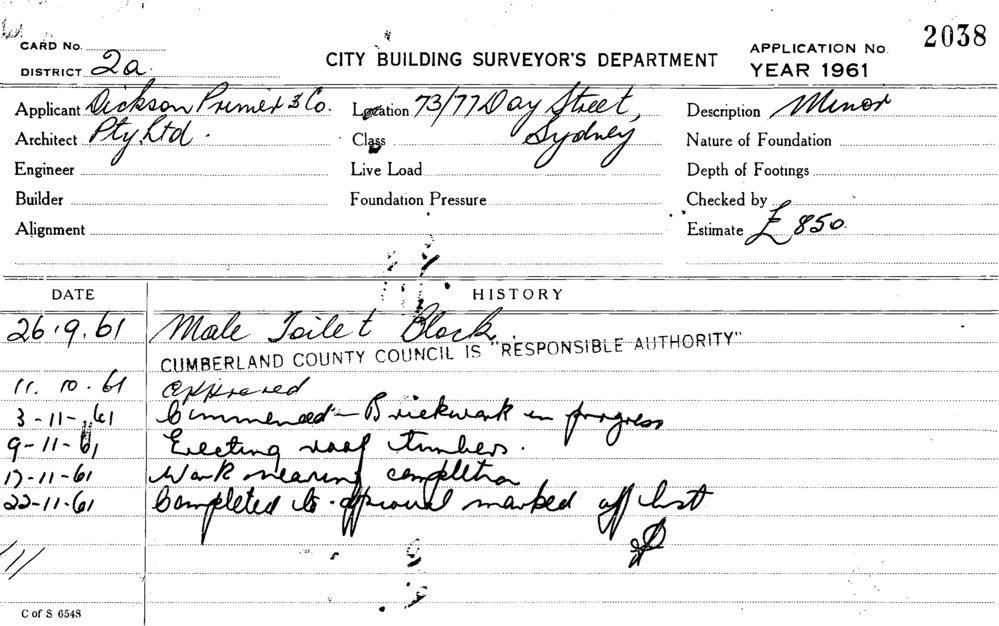 CARD No.
DISTRICT 2a
CITY BUILDING SURVEYOR'S DEPARTMENT
APPLICATION No. 2038
YEAR 1961
Applicant Dickson Primer & Co.
Architect Pty. Ltd.
Engineer
Builder
Alignment
Location 73/77 Day Street,
Class Sydney
Live Load
Foundation Pressure
Description Minor
Nature of Foundation
Depth of Footings
Checked by
Estimate £ 850.
DATE HISTORY
26.9.61 Male Toilet Block.
CUMBERLAND COUNTY COUNCIL IS "RESPONSIBLE AUTHORITY"
11.10.61 approved
3-11-61 Commenced - Brickwork in progress
9-11-61 Erecting roof timbers.
17-11-61 Work nearing completion
22-11-61 Completed to approval marked off list
C of S 6548